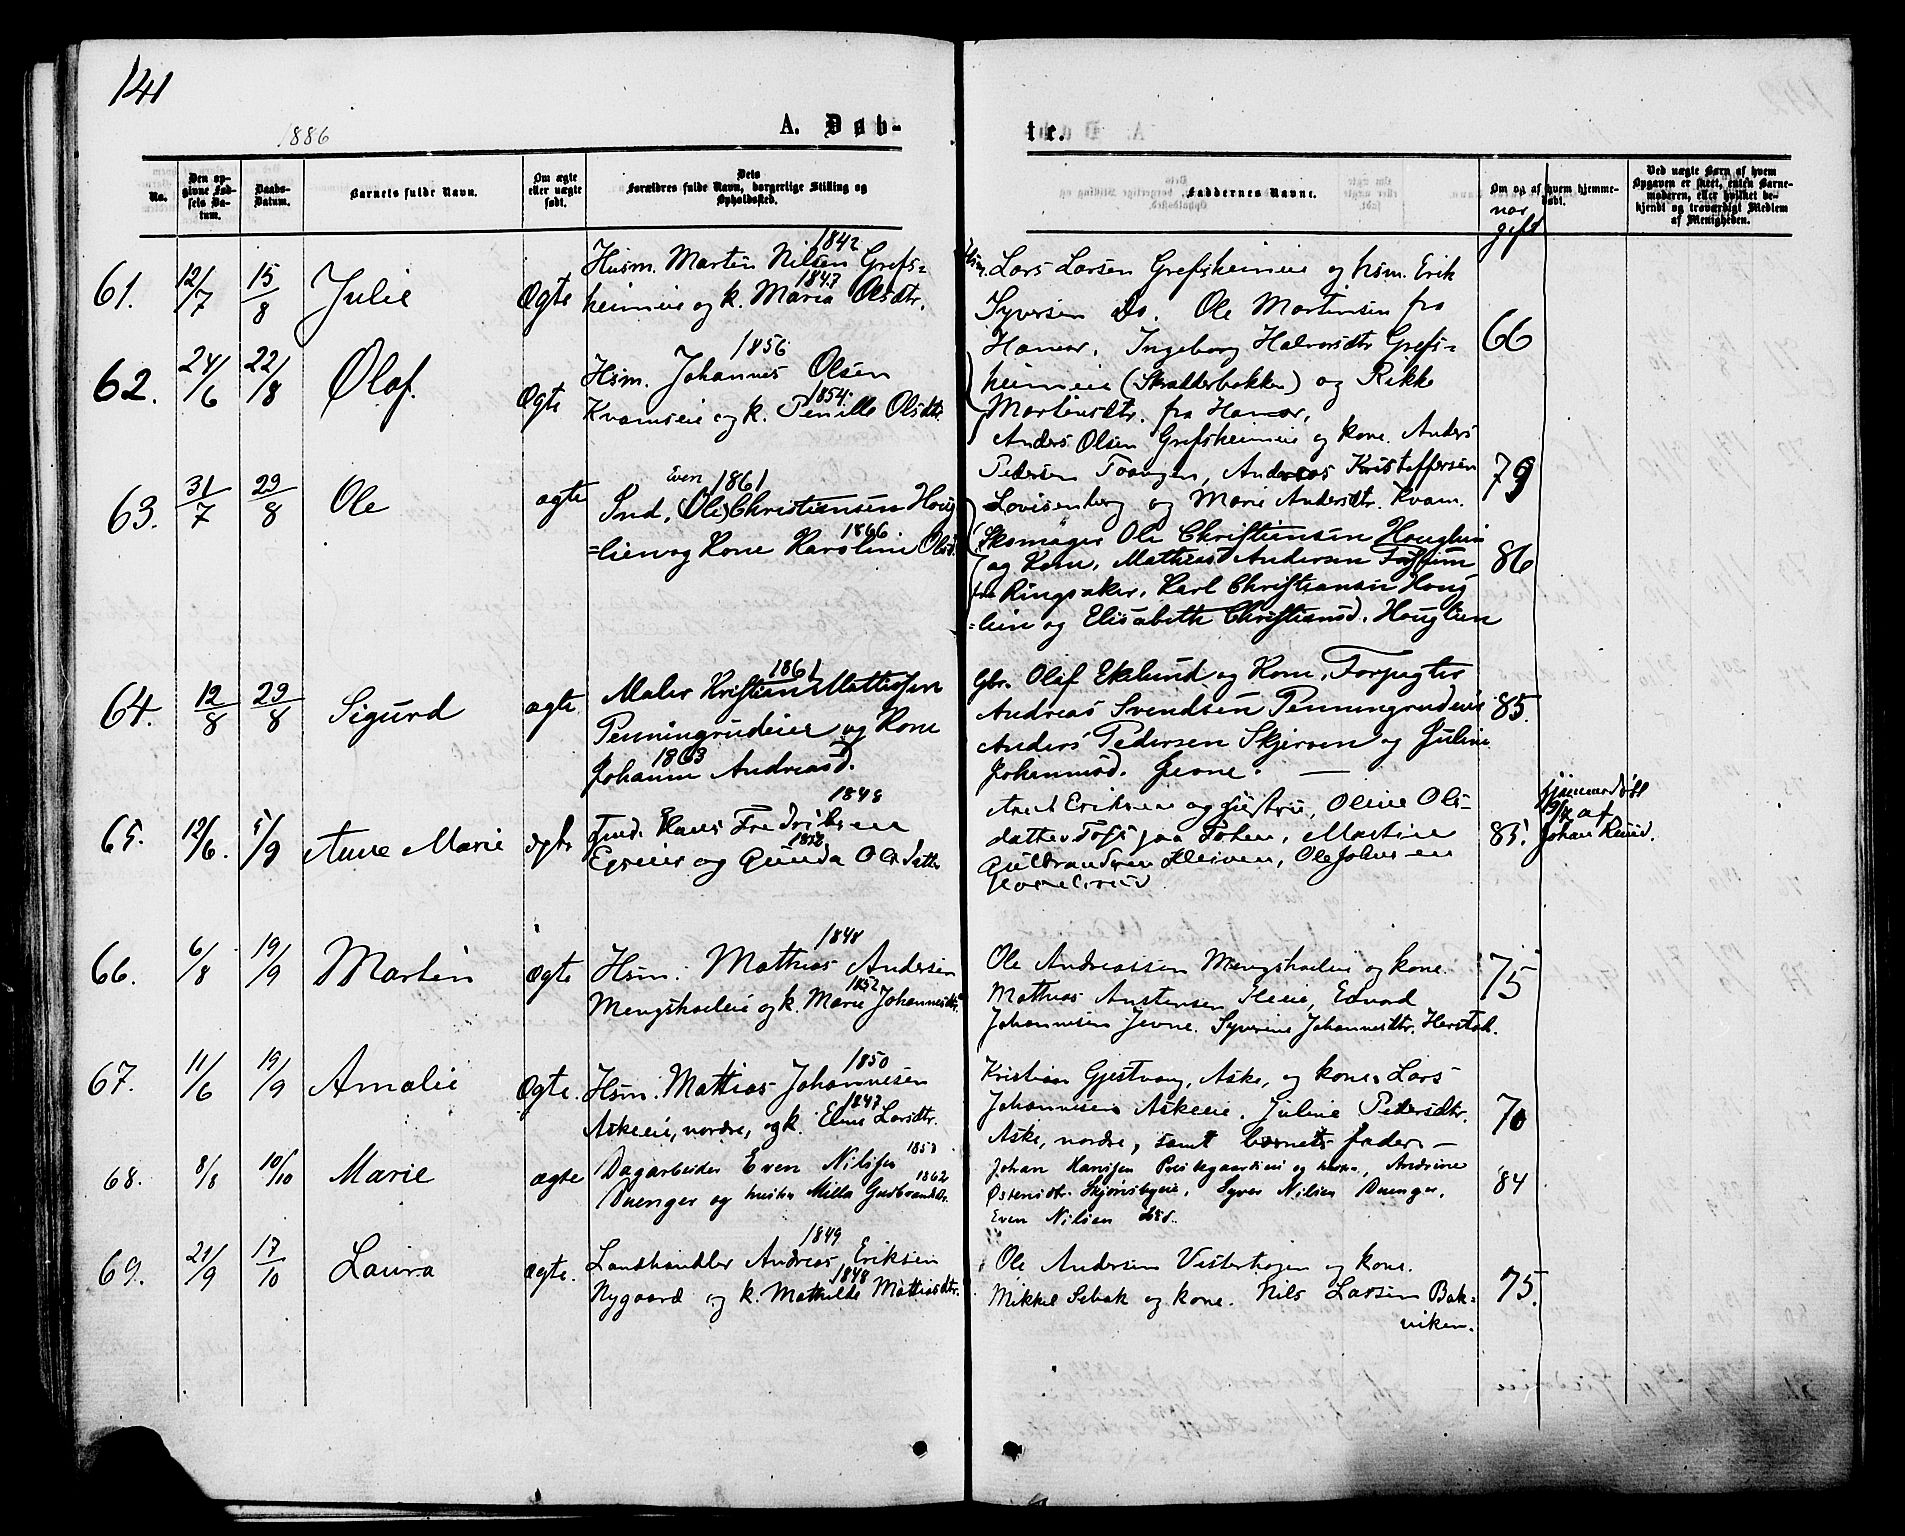 141
1886
A. Døb-
te.
No.
Den op-
givne Fød-
sels Da-
tum.
Daabs-
Datum.
Barnets fulde Navn.
Om ægte
eller uægte
født.
Dets
Forældres fulde Navn, borgerlige Stilling og
Opholdssted.
Faddernes Navne.
Om og af hvem hjemme-
døbt.
Ved uægte Børn af hvem
Opgaven er skeet, enten Barne-
moderen, eller hvilket be-
kjendt og troværdigt Medlem
af Menigheden.
naar
gift
61. 12/7 15/8 Julie Ægte
1842
Husm. Martin Nilsen Grefs-
1847
heimeie og k. Maria Olsdtr.
Hsm. Lars Larsen Grefsheimeie og hsm. Erik
Syversen do. Ole Martinsen fra
Hamar, Ingeborg Halvorsdtr Grefs-
heimeie (Skralderbakken) og Rikke
Martinsdtr. fra Hamar.
66
62. 24/6 22/8 Olaf. Ægte
1856
Hsm. Johannes Olsen
1854.
Kvamseie og k. Pernille Olsdtr.
Anders Olsen Grefsheimeie og kone. Anders
Pedersen Toangen, Andreas Kristoffersen
Lovisenberg og Marie Andersdtr. Kvam.
79
63. 31/7 29/8 Ole ægte
Even 1861
Ind. (Ole) Christiansen Houg
1866.
=lien og Kone Karoline Olsd.
Skomager Ole Christiansen Houglien
og Kone, Mathias Andersen
fra Ringsaker, Karl Christiansen Houg
=lien og Elisabeth Christiansd. Houglien
86
64. 12/8 29/8 Sigurd ægte
1861
Maler Kristian Mathisen
Penningrudeie og Kone
1863
Johanne Andreasd.
Gbr. Olaf Eklund og Kone, Forpagter
Andreas Svendsen Penningrudeie
Anders Pedersen Skjerven og Juline
Johannesd. Jevne. —
85.
65. 12/6. 5/9 Anne Marie ægte
1848
Ind. Hans Fredriksen
1852
Egseie og Gunda Olsdatter
Eriksen og Hustru, Oline Ols-
datter paa Toten, Martine
Gulbrandsen Kleiven, Ole Johnsen
85. hjemmedøbt
af
Johan Ruud.
66. 6/8 19/9 Martin Ægte
1848
Hsm. Mathias Andersen
1852
Mengshoeleie og k. Marie Johannesdtr.
Ole Andreassen Mengshoeleie og kone.
Mathias Austensen Eie, Edvard
Johannesen Jevne. Syverine Johannesdtr. Herstad.
75
67. 11/6 19/9 Amalie Ægte.
1850
Hsm. Mattias Johannesen
1847
Askeeie, nordre, og k. Eline Larsdtr.
Kristian Gjestvang, Aske, og kone. Lars
Johannesen Askeeie. Juline Petersdtr.
Aske, nordre, samt barnets fader —
70
68. 8/8 10/10 Marie ægte
Dagarbeider Even Nilsen 1853
1862
Duenger og hustru Milla Gudbrandsdtr.
Johan Hansen Prestegaardseie og kone, Andrine
Østensdtr. Skjønsbyeie, Syver Nilsen Duenger,
Even Nilsen
84
69. 21/9 17/10 Laura ægte.
1849
Landhandler Andreas Eriksen
1848
Nygaard og k. Mathilde Mattiasdtr.
Ole Andersen Vesterhagen og kone.
Mikkel Sebak og kone. Nils Larsen Bak-
viken.
75.